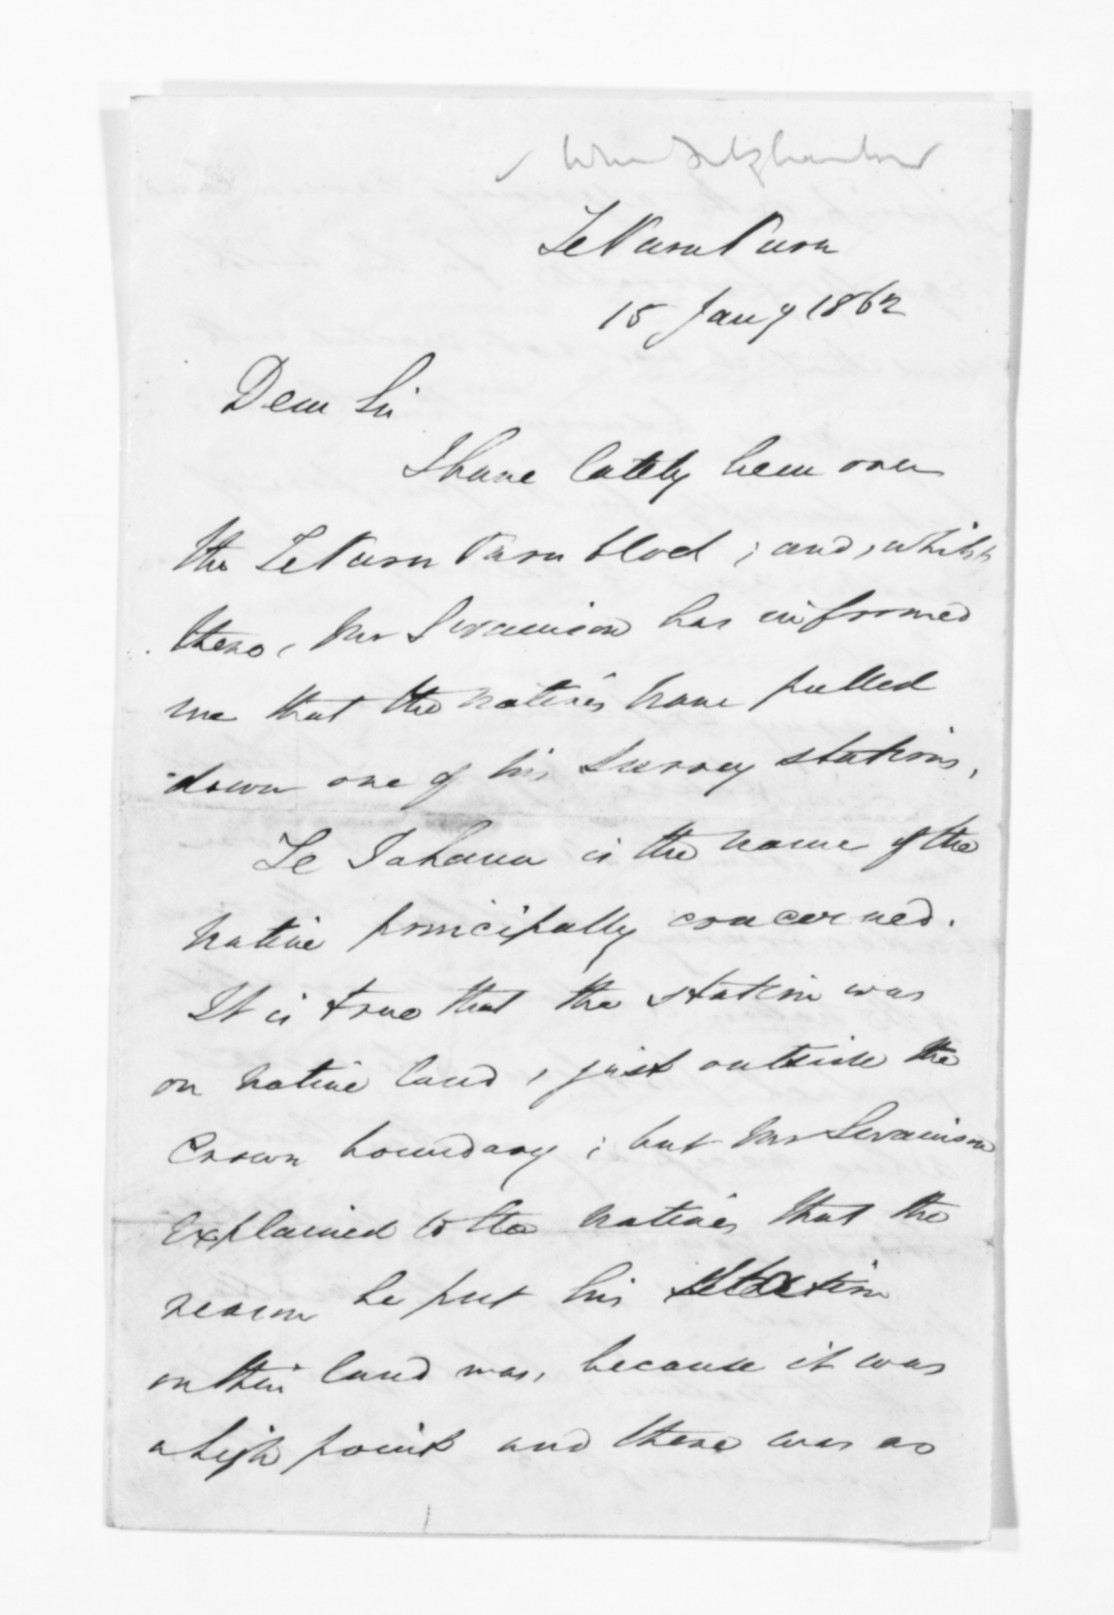 Wm Fitzherbert
Te Puru Puru
15 Jany 1862
Dear Sir
I have lately been over
the Te Puru Puru block; and, whilst
there, Mr Swainson has informed
me that the natives have pulled
down one of his survey stations,
Te Tahana is the name of the
native principally concerned.
It is true that the station was
on native land, just outside the
Crown boundary; but Mr Swainson
explained to the natives that the
reason he put his station
on their land was, because it was
a high point and there was no